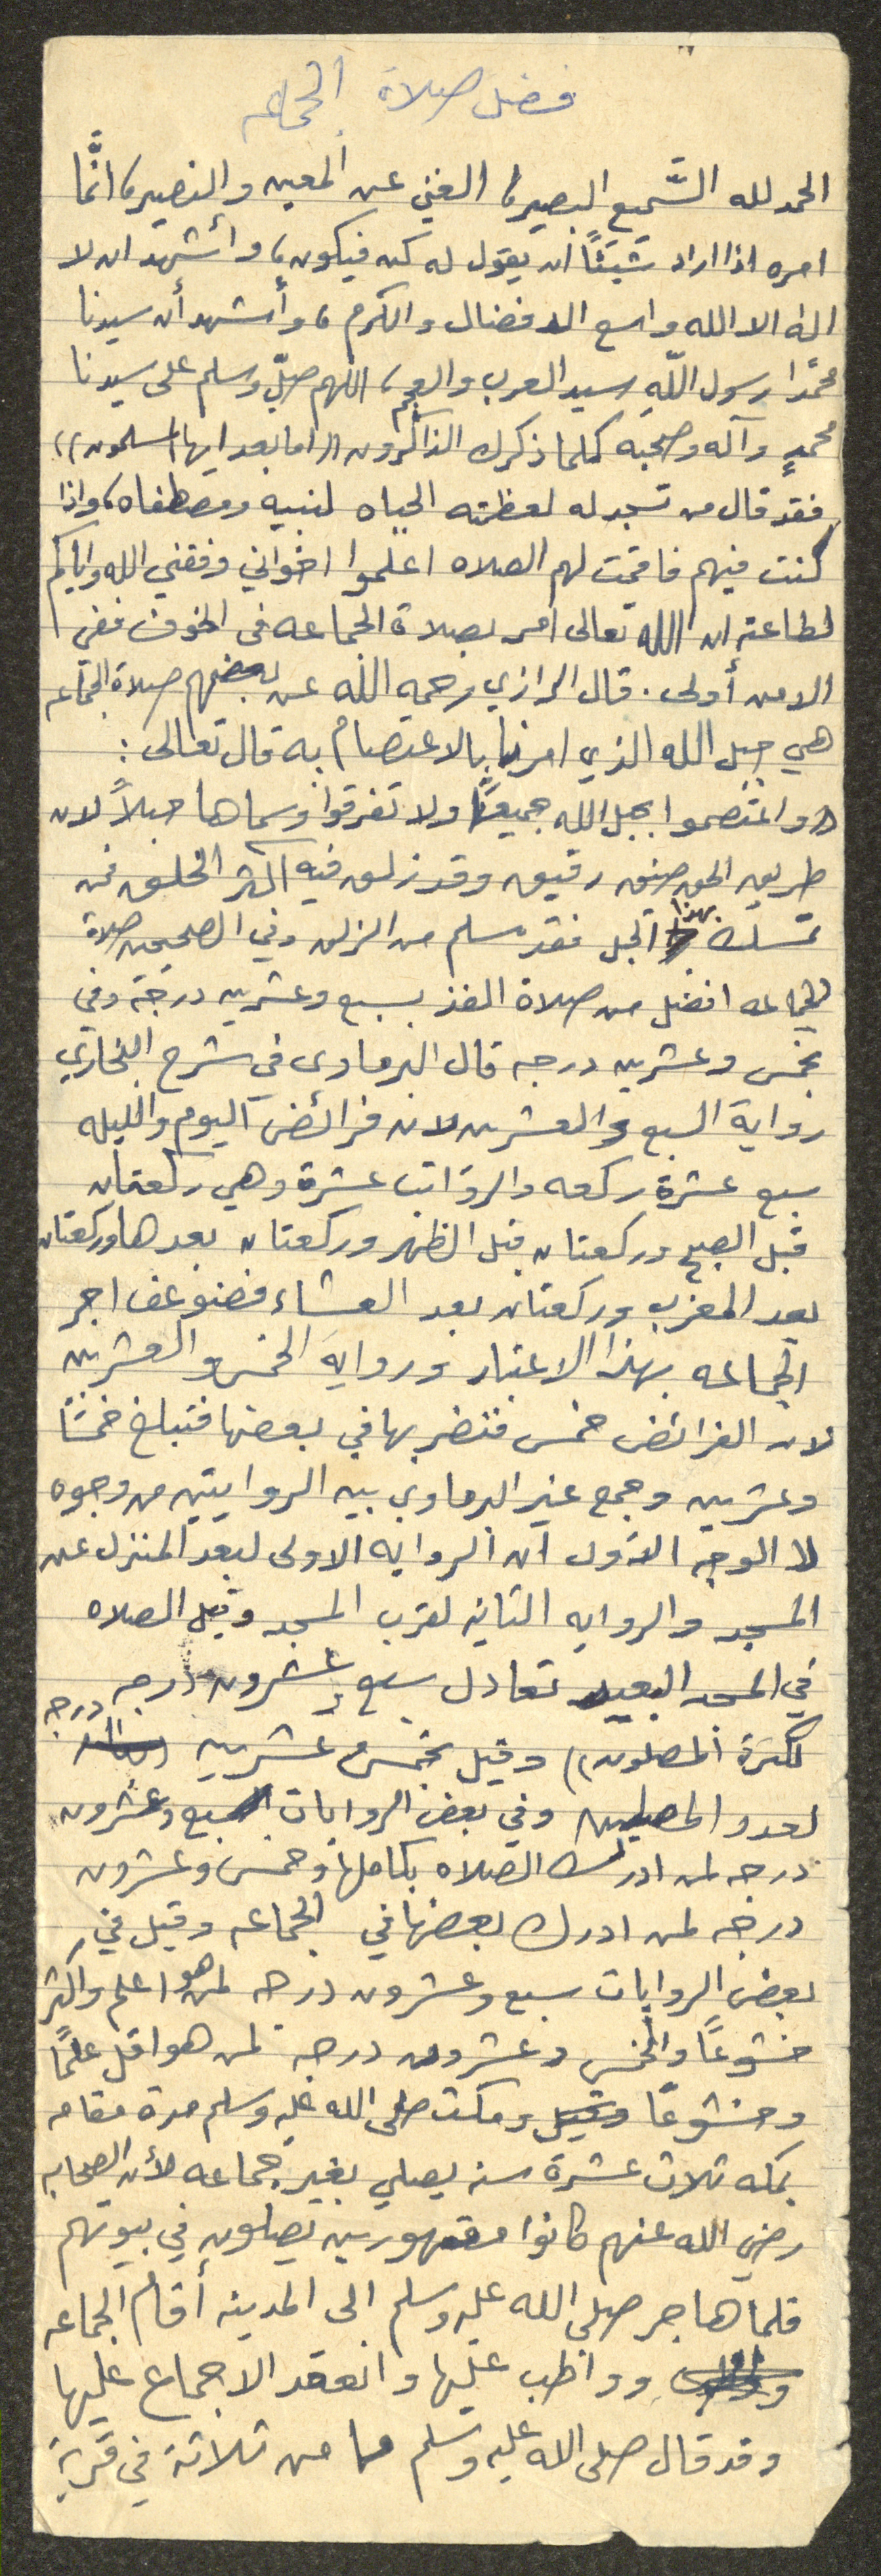 فضل صلاة الجماعه
الحمد لله السَّميع البصير، الغني عن المعين والنصير، انَّما
امره اذا اراد شيئًا ان يقول له كن فيكون، وأشهد ان لا
اله الا الله واسع الافضال والكرم، وأشهد أن سيدنا
محمَّدا رسول اللّه سيد العرب والعجم، اللهم صلِّ وسلم على سيدنا
محمدٍ وآله وصحبه كلما ذكرك الذاكرون ((اما بعد ايها المسلمون))
فقد قال من تسجد له لعظمته الجباه لنبيه ومصطفاه، واذا
كنت فيهم فاقمت لهم الصلاه اعلموا اخواني وفقني الله واياكم
لطاعته ان الله تعالى امر بصلاة الجماعه في الخوف ففي
الامن أولى. قال الرازي رحمه الله عن بعضهم صلاة الجماعه
هي حبل الله الذي امرنا بالاعتصام به قال تعالى:
((واعتصموا بحبل الله جميعًا ولا تفرقوا وسماها حبلاً لان
طريق الحق ضيق رقيق وقد زلق فيه اكثر الخلق فمن
تمسك بهذا الحبل فقد سلم من الزلق وفي الصحيحين صلاة
الجماعه افضل من صلاة الفذ بسبع وعشرين درجة وفي
بخمس وعشرين درجه قال البرماوى في شرح البخاري
رواية السبع والعشرين لان فرائض اليوم والليله
سبع عشرة ركعه والرواتب عشرة وهي ركعتان
قبل الصبح وركعتان قبل الظهر وركعتان بعدها وركعتان
بعد المغرب وركعتان بعد العشاء فضوعف اجر
الجماعه بهذا الاعتبار ورواية الخمس والعشرين
لان الفرائض خمس فتضربها في بعضها فتبلغ خمسًا
وعشرين وجمع غير البرماوي بين الروايتين من وجوه
الوجه الاول ان الروايه الاولى لبعد المنزل عن
المسجد والروايه الثانيه لقرب المسجد وقيل الصلاه
في المسجد البعيد تعادل سبع وعشرون درجه
لكثرة المصلون)) وقيل بخمس وعشرين درجه
لعدد المصليين وفي بعض الروايات السبع وعشرون
درجه لمن ادرك الصلاه بكاملها وخمس وعشرون
درجه لمن ادرك بعضها في الجماعه وقيل في
بعض الروايات سبع وعشرون درجه لمن هو اعلم واكثر
خشوعًا والخمس وعشرون درجه لمن هو اقل علمًا
وخشوعًا ومكث صلى الله عليه وسلم مدة مقامه
بمكه ثلاث عشرة سنه يصلي بغير جماعه لأن الصحابه
رضي الله عنهم كانوا مقهورين يصلون في بيوتهم
فلما هاجر صلى الله عليه وسلم الى المدينه أقام الجماعه
وواظب عليها وانعقد الاجماع عليها
وقد قال صلى الله عليه وسلم ما من ثلاثة في قرية